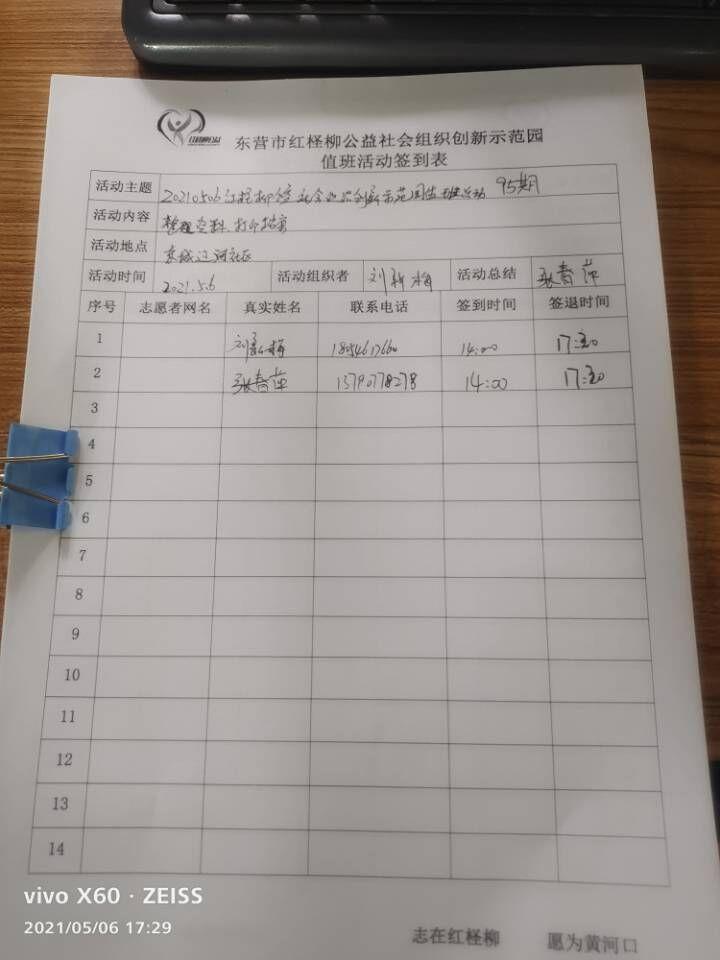 东营市红柽柳公益社会组织创新示范园
值班活动签到表
活动主题 20210506红柽柳公益社会组织创新示范园值班活动 95期
活动内容 整理资料、打印档案
活动地点 东城辽河社区
活动时间 2021.5.6 活动组织者 刘新梅 活动总结 张春萍
序号 志愿者网名 真实姓名 联系电话 签到时间 签退时间
1 刘新梅 14:00 17:30
2 张春萍 13790778278 14:00 17:30
3
4
5
6
7
8
9
10
11
12
13
14
vivo X60 · ZEISS
2021/05/06 17:29
志在红柽柳 愿为黄河口